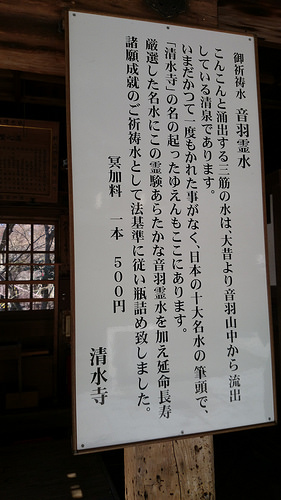 御祈祷水　音羽霊水
こんこんと涌出する三筋の水は、大昔より音羽山中から流出
している清泉であります。
いまだかつて一度もかれた事がなく、日本の十大名水の筆頭で、
「清水寺」の名の起ったゆえんもここにあります。
厳選した名水にこの霊験あらたかな音羽霊水を加え延命長寿
諸願成就のご祈祷水として法基準に従い瓶詰め致しました。
冥加料　一本　５００円
清水寺